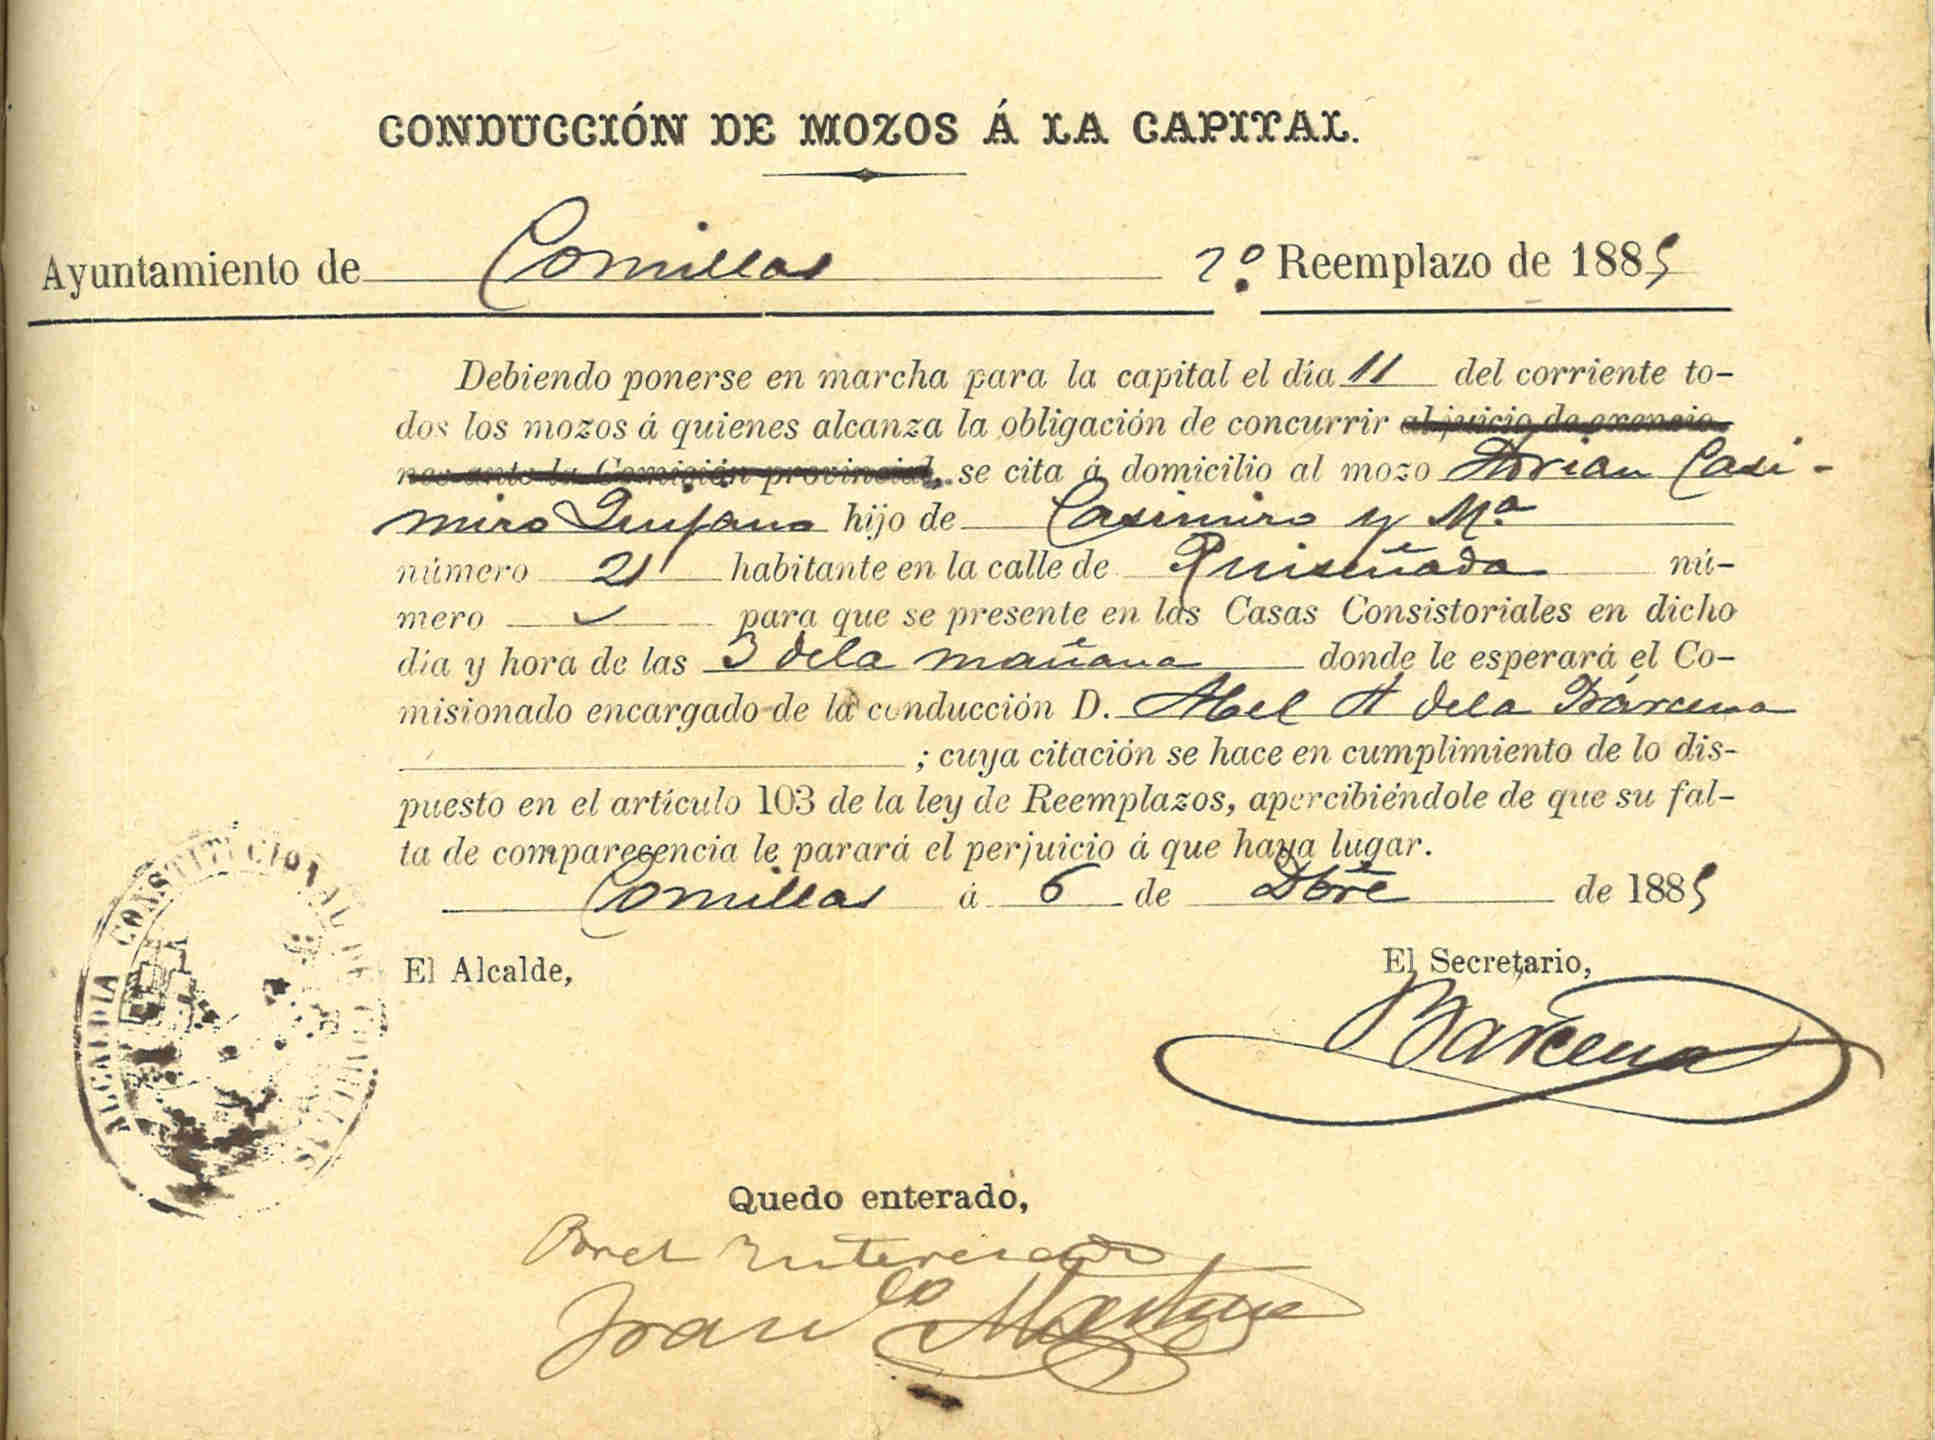 CONDUCCIÓN DE MOZOS Á LA CAPITAL.
Ayuntamiento de Comillas 2º Reemplazo de 1885
Debiendo ponerse en marcha para la capital el día 11 del corriente to-
dos los mozos á quienes alcanza la obligación de concurrir al juicio de exencio-
nes ante la Comisión provincial, se cita á domicilio al mozo Adrian Casi-
miro Quijano hijo de Casimiro y Mª
número 21 habitante en la calle de Ruiseñada nú-
mero para que se presente en las Casas Consistoriales en dicho
día y hora de las 3 de la mañana donde le esperará el Co-
misionado encargado de la conducción D. Abel A de la Bárcena
; cuya citación se hace en cumplimiento de lo dis-
puesto en el artículo 103 de la ley de Reemplazos, apercibiéndole de que su fal-
ta de comparecencia le parará el perjuicio á que haya lugar.
Comillas á 6 de Dbre de 1885
El Alcalde,
El Secretario,
Barcena
ALCALDIA CONSTITUCIONAL DE
Quedo enterado,
Por el Interesado
Franco Martinez